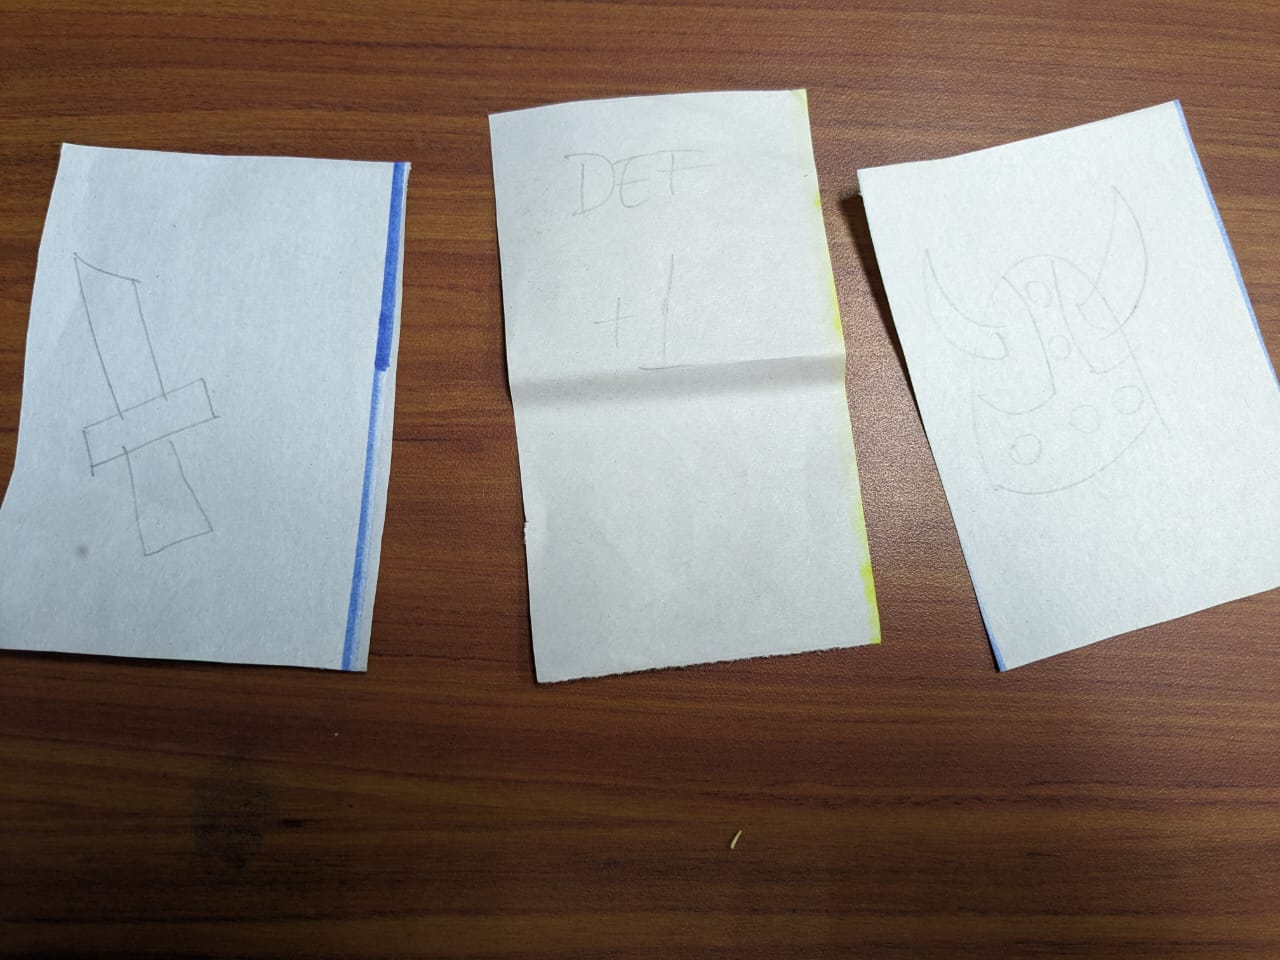 DEF
+1